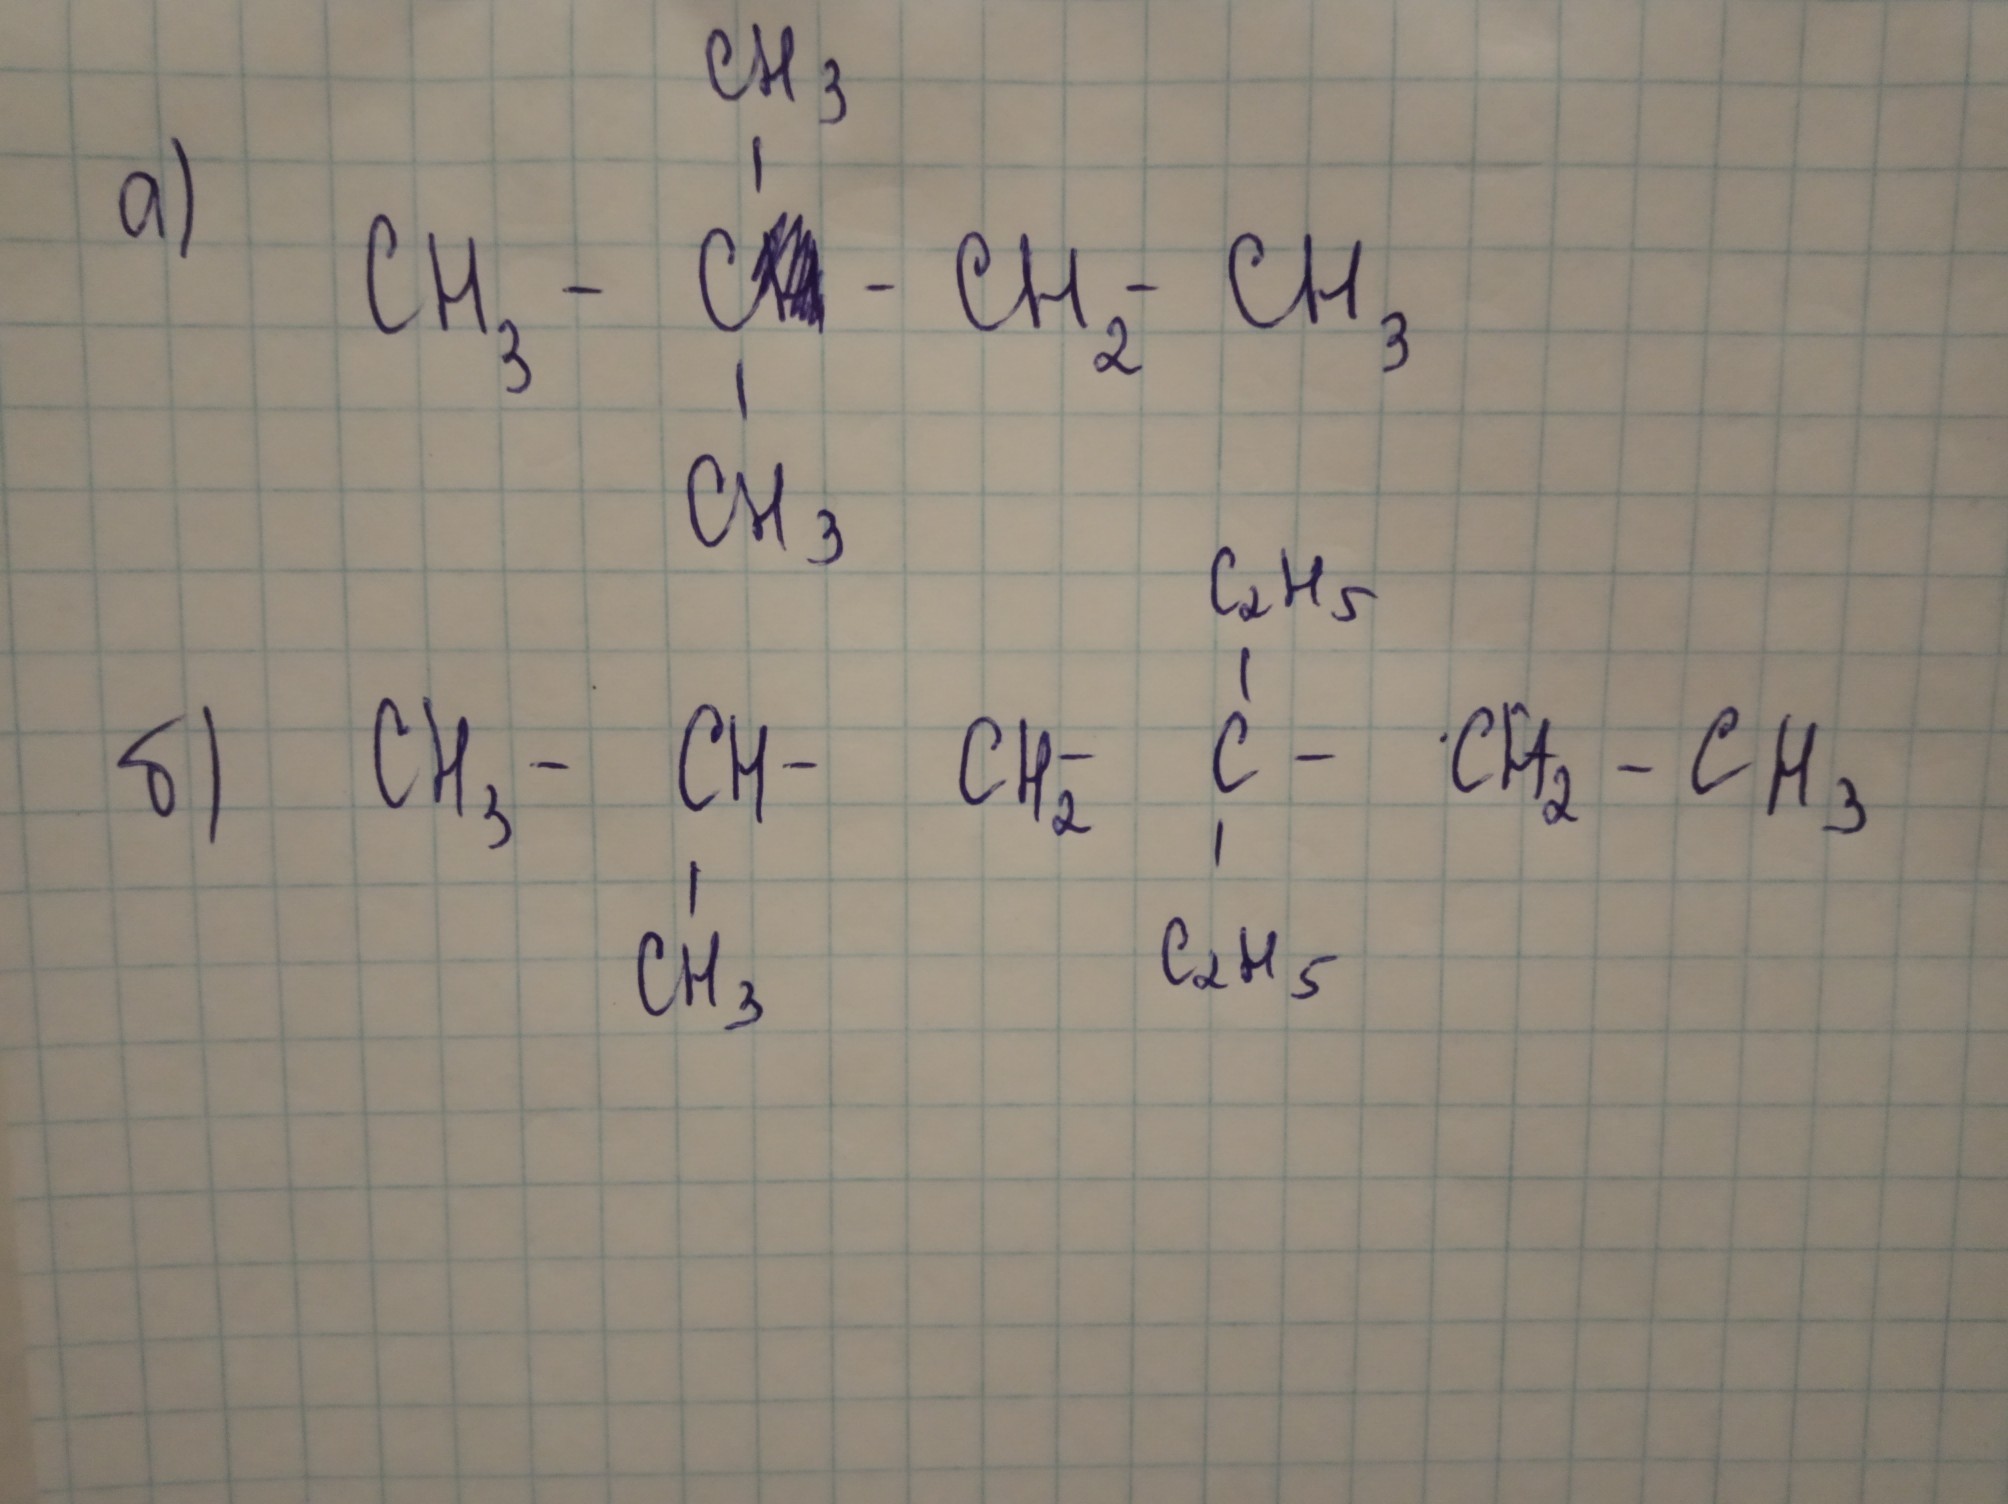 CH3
а) CH3 - C - CH2 - CH3
CH3
C2H5
б) CH3 - CH - CH2 - C - CH2 - CH3
CH3 C2H5